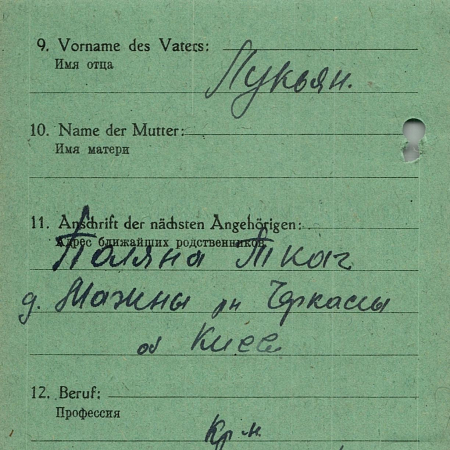 9. Vorname des Vaters:
Имя отца
Лукьян.
10. Name der Mutter:
Имя матери
11. Anschrift der nächsten Angehörigen:
Адрес ближайших родственников
Ткач
д. рн Черкассы
об Киев
12. Beruf:
Профессия